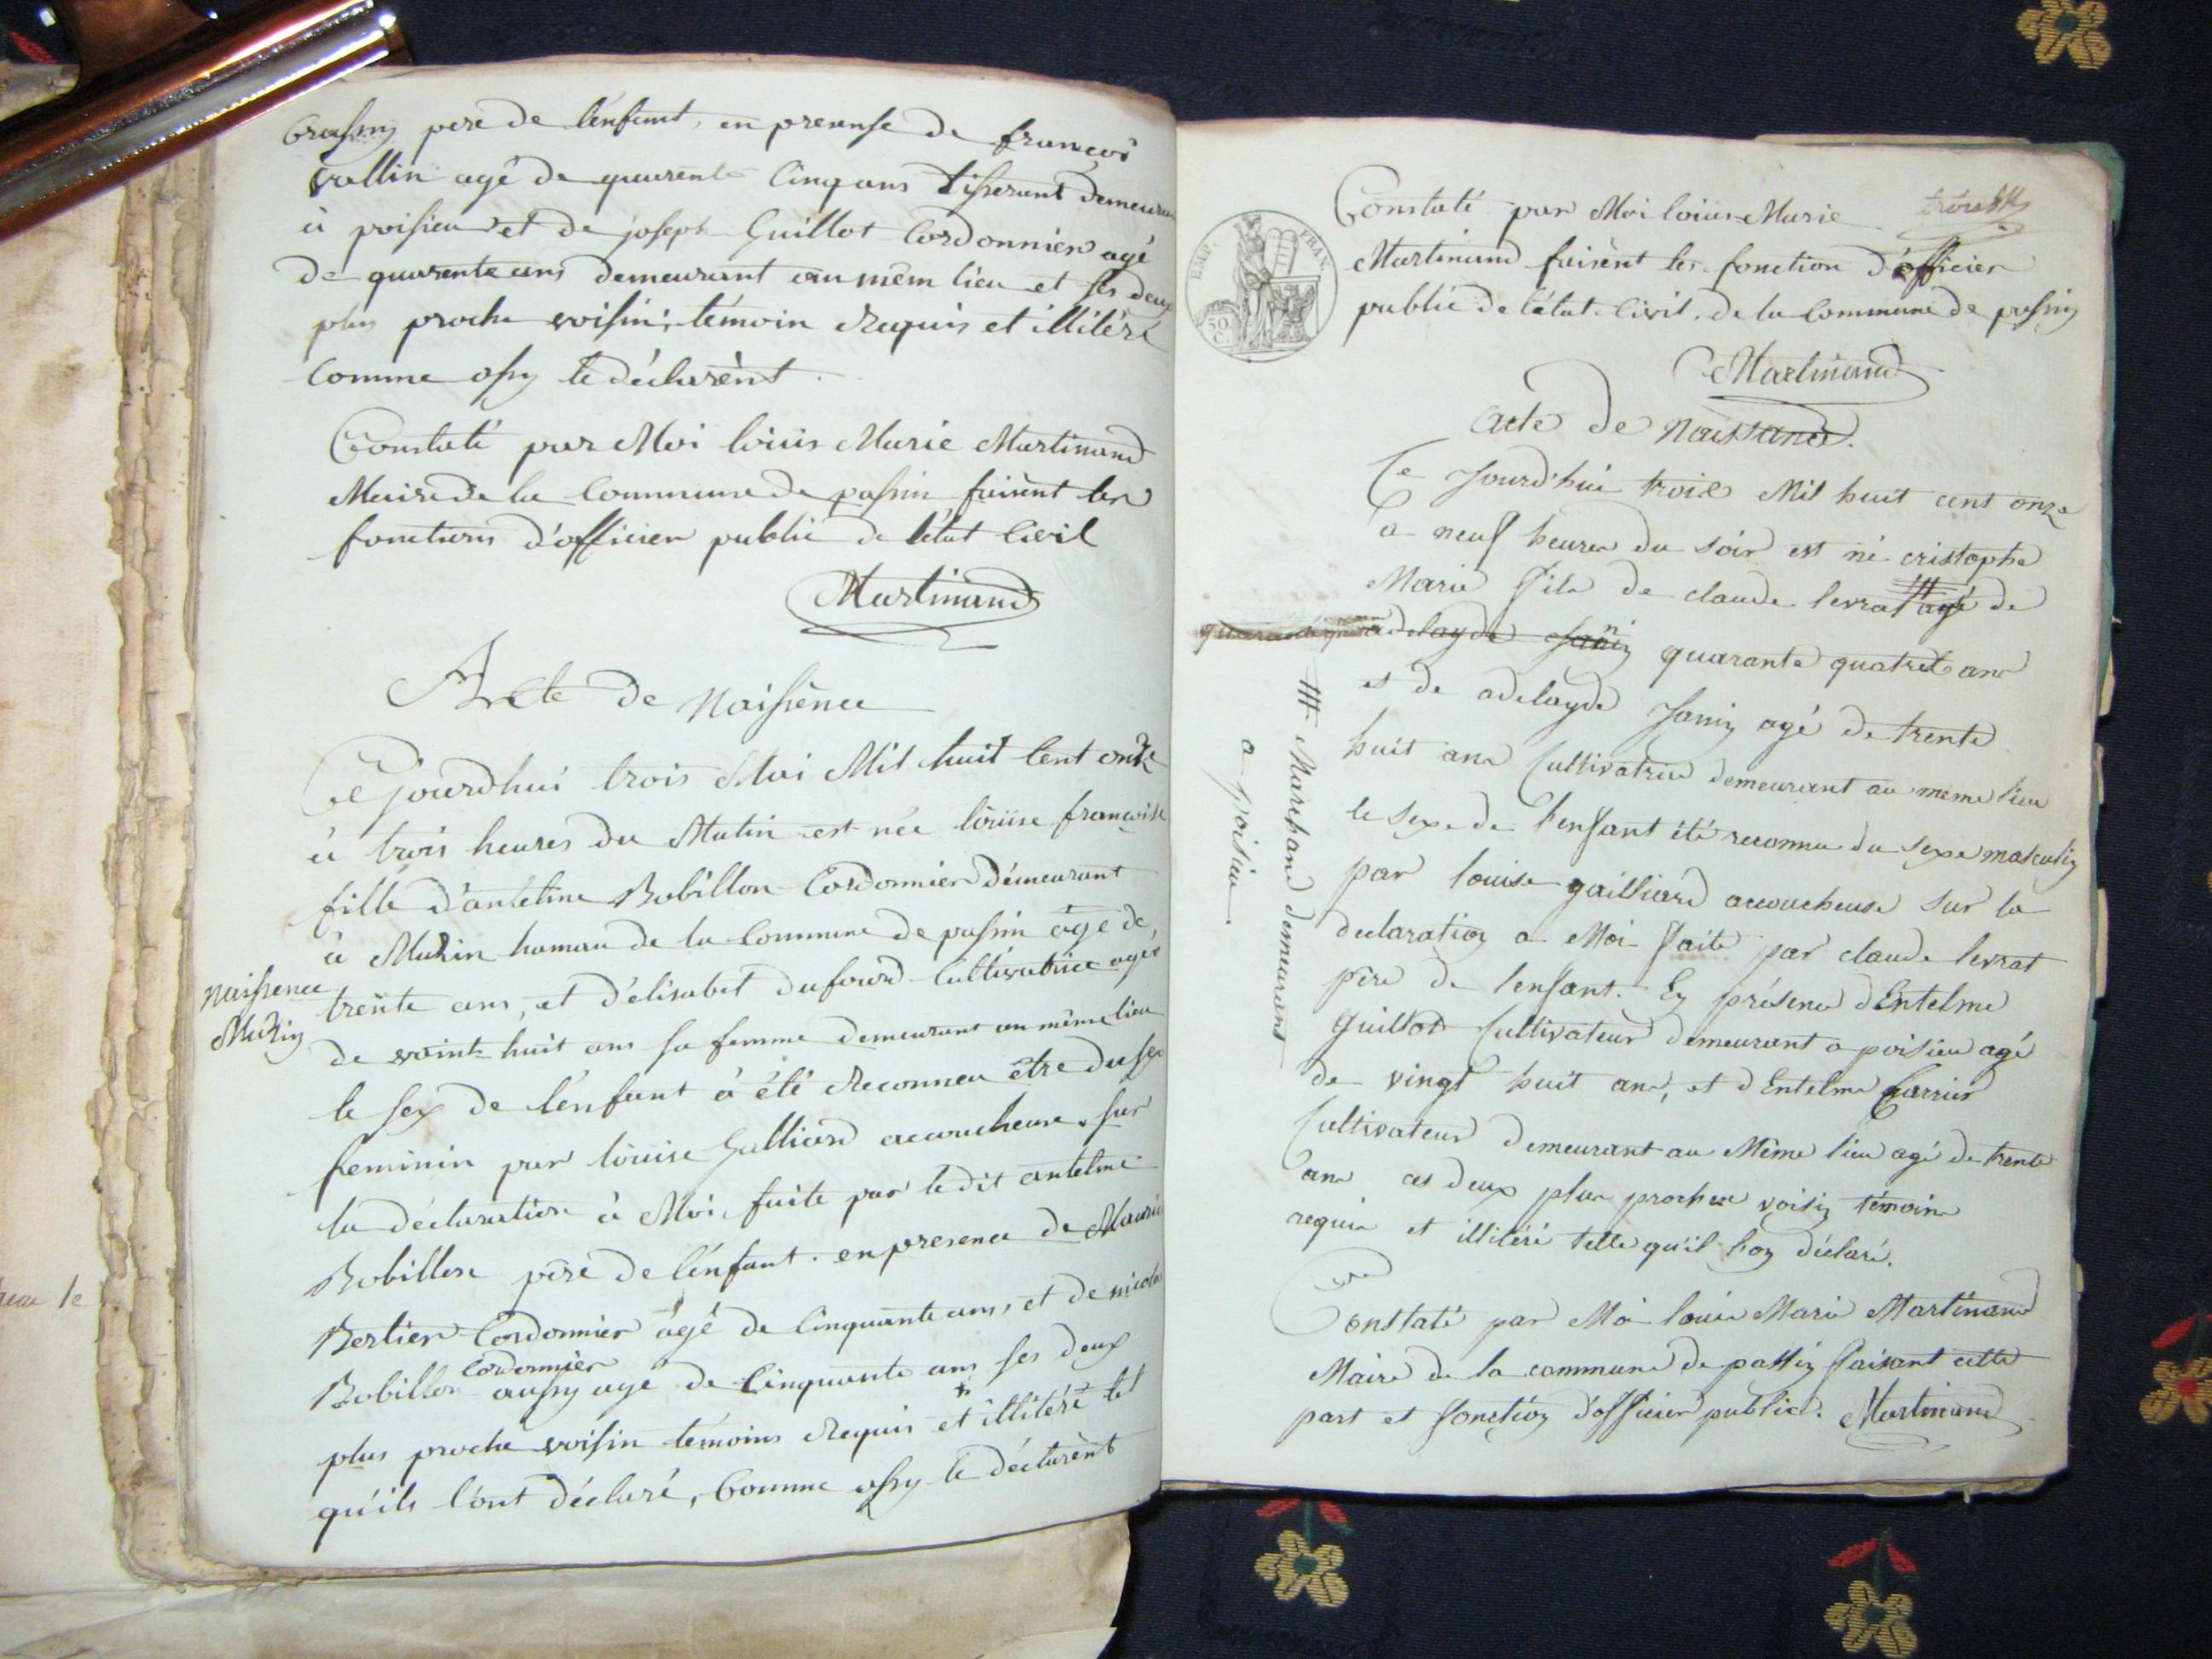 pere de l'enfant, en presense de françois
vallin agé de quarente cinq ans tisserant demeurant
à poisieu et de joseph Guillot Cordonnier agé
de quarente ans demeurant au mêm lieu et ses deux
plus proche voisin, témoin Requis et illitéré
comme assy le déclarènt.
Constaté par Moi loüis Marie Martinand
Maire de la Commune de passin faisènt les
fonctions d'officier public de l'état Civil
Martinand
Acte de Naissènce
Ce jourd'hui trois Mai Mil huit Cent onze
à trois heures du Matin est née loüise françoise
fille d'antelme Bobillon Cordonnier démeurant
à Muzin hamau de la Commune de passin agé de
naissence
Muzin
trente ans, et d'élisabet dufour Cultivatrice agée
de vaint huit ans sa femme demeurant au même lieu
le sex de l'énfant à été Reconneu être du sex
feminin par loüise Galliard acoucheuse, sur
la déclaration à Moi faite par le dit antelme
Bobillon père de l'énfant. en presence de Mauri
Berlier Cordonnier âgé de Cinquante ans, et de nicolas
Cordonnier
Bobillon aussy agé de Cinquante ans ses deux
plus proche voisin témoins Requis et illitéré tel
qu'ils l'ont déclaré, Comme assy le déclarènt
EMP. FRAN.
50 C.
Constaté par Moi loiüs Marie
Martinand faisènt les fonction d'officier
public de l'état Civil, de la Commune de passin
Martinand
acte de Naissance.
Ce Jourd'hui trois Mil huit cent onze
a neuf heures du soir est né cristophe
Marie fils de claude levrat agé de
adelayde Janin quarante quatre ans
et de adelayde Janin agé de trente
huit ans Cultivatrice demeurant au meme lieu
le sexe de l'enfant été reconnu du sexe masculin
par louise gailliard accoucheuse sur la
declaration a Moi faite par claude levrat
père de l'enfant. En présence d'Entelme
Guillot Cultivateur demeurant a poisieu agé
de vingt huit ans, et d'Entelme Carrier
Cultivateur demeurant au Même lieu agé de trente
ans ces deux plus proches voisin témoins
requis et illitéré telle qu'il l'on déclaré.
Constaté par Moi louis Marie Martinand
Maire de la commune de passin faisant cette
part et fonction d'officier public. Martinand
Marchand demeurant
a poisieu.